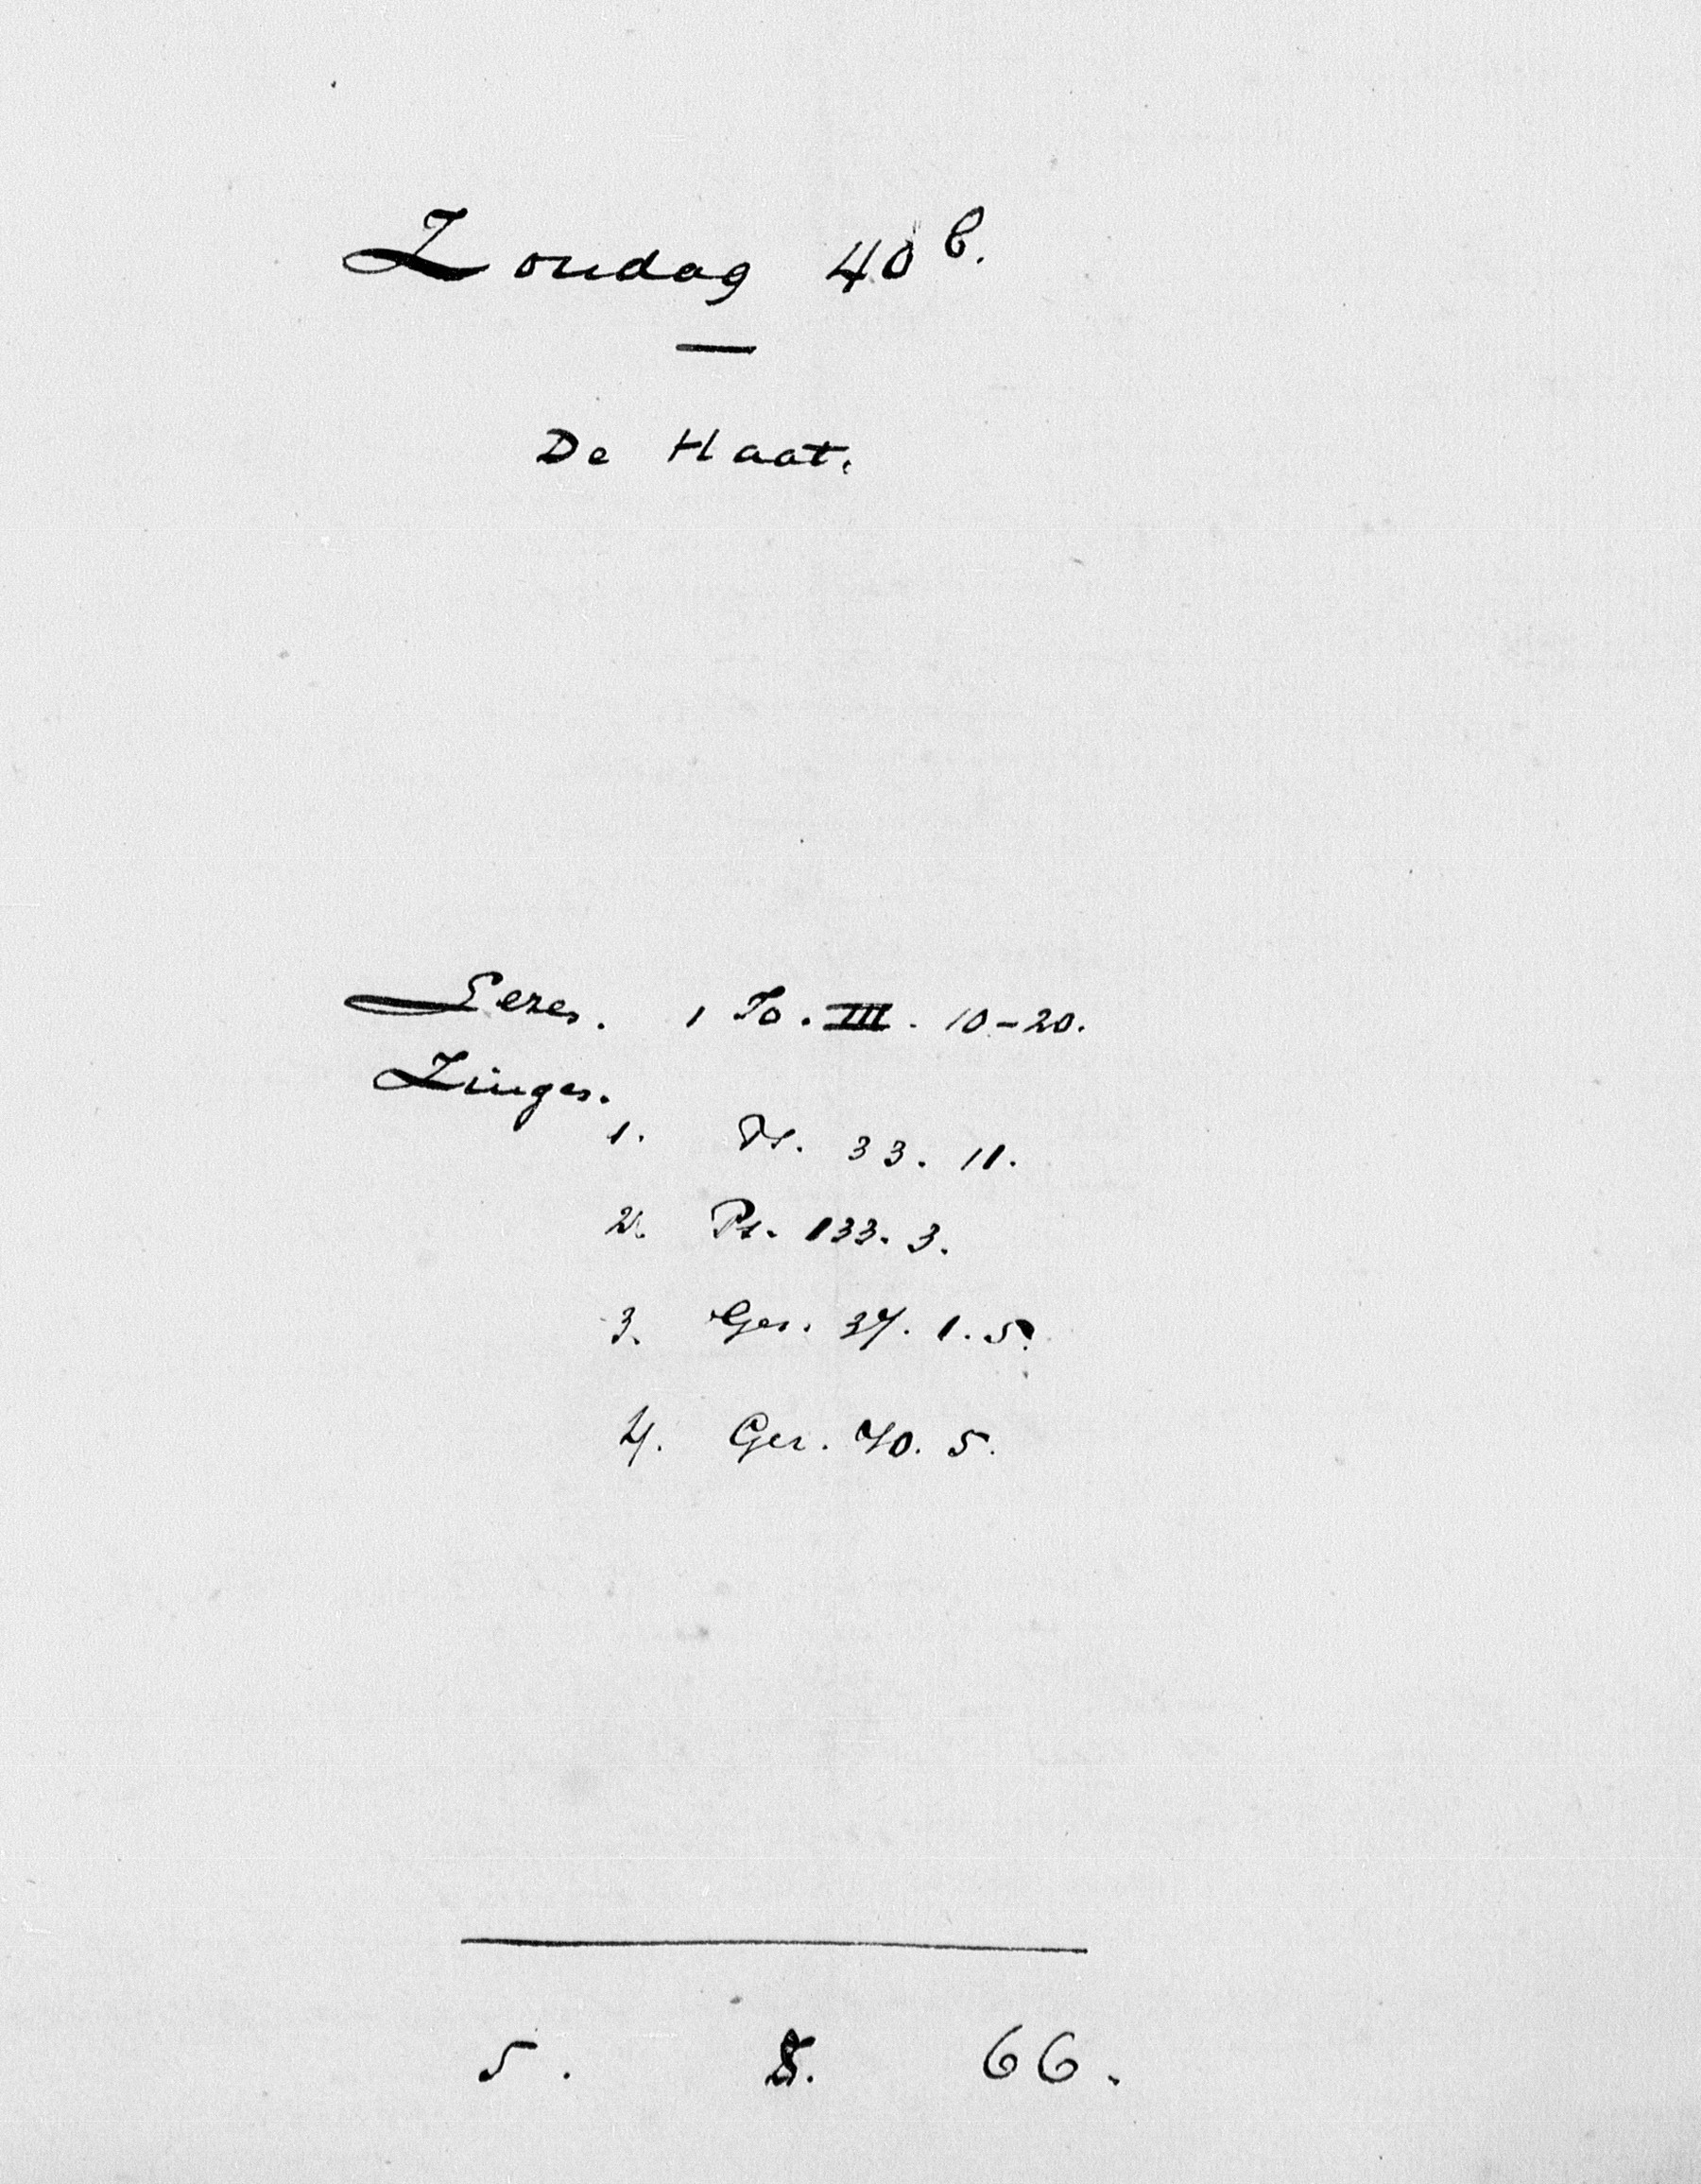 Zondag 40 b.
De Haat.
Lezen. 1 Jo. III. 10-20.
Zingen.
1. Ps. 33. 11.
2. Ps. 133. 3.
3. Gez. 37. 1. 5.
4. Gez. 70. 5.
5. 8. 66.